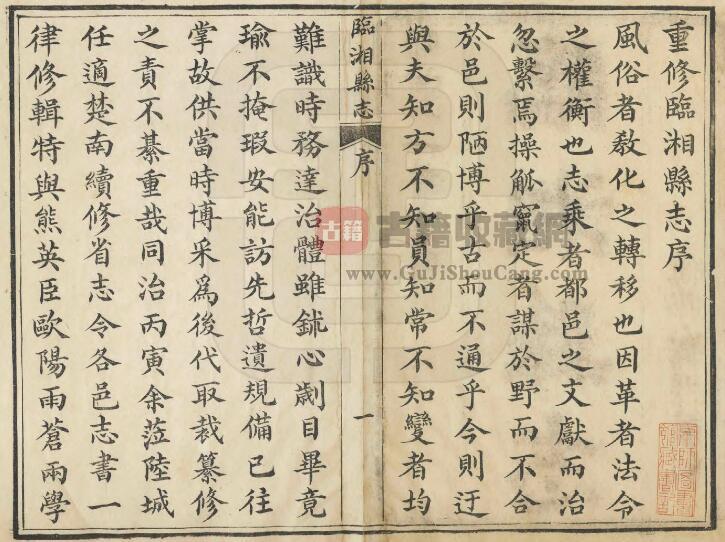 重修臨湘縣志序
風俗者教化之轉移也因革者法令
之權衡也志乘者都邑之文獻而治
忽繫焉操觚竄定者謀於野而不合
於邑則陋博乎古而不通乎今則迂
與夫知方不知員知常不知變者均
臨湘縣志 序 一
難識時務達治體雖鉥心劌目畢竟
瑜不掩瑕安能訪先哲遺規備已往
掌故供當時博采為後代取裁纂修
之責不綦重哉同治丙寅余蒞陸城
任適楚南續修省志令各邑志書一
律修輯特與熊英臣歐陽雨蒼兩學
古籍 古籍收藏網
www.GuJiShouCang.com